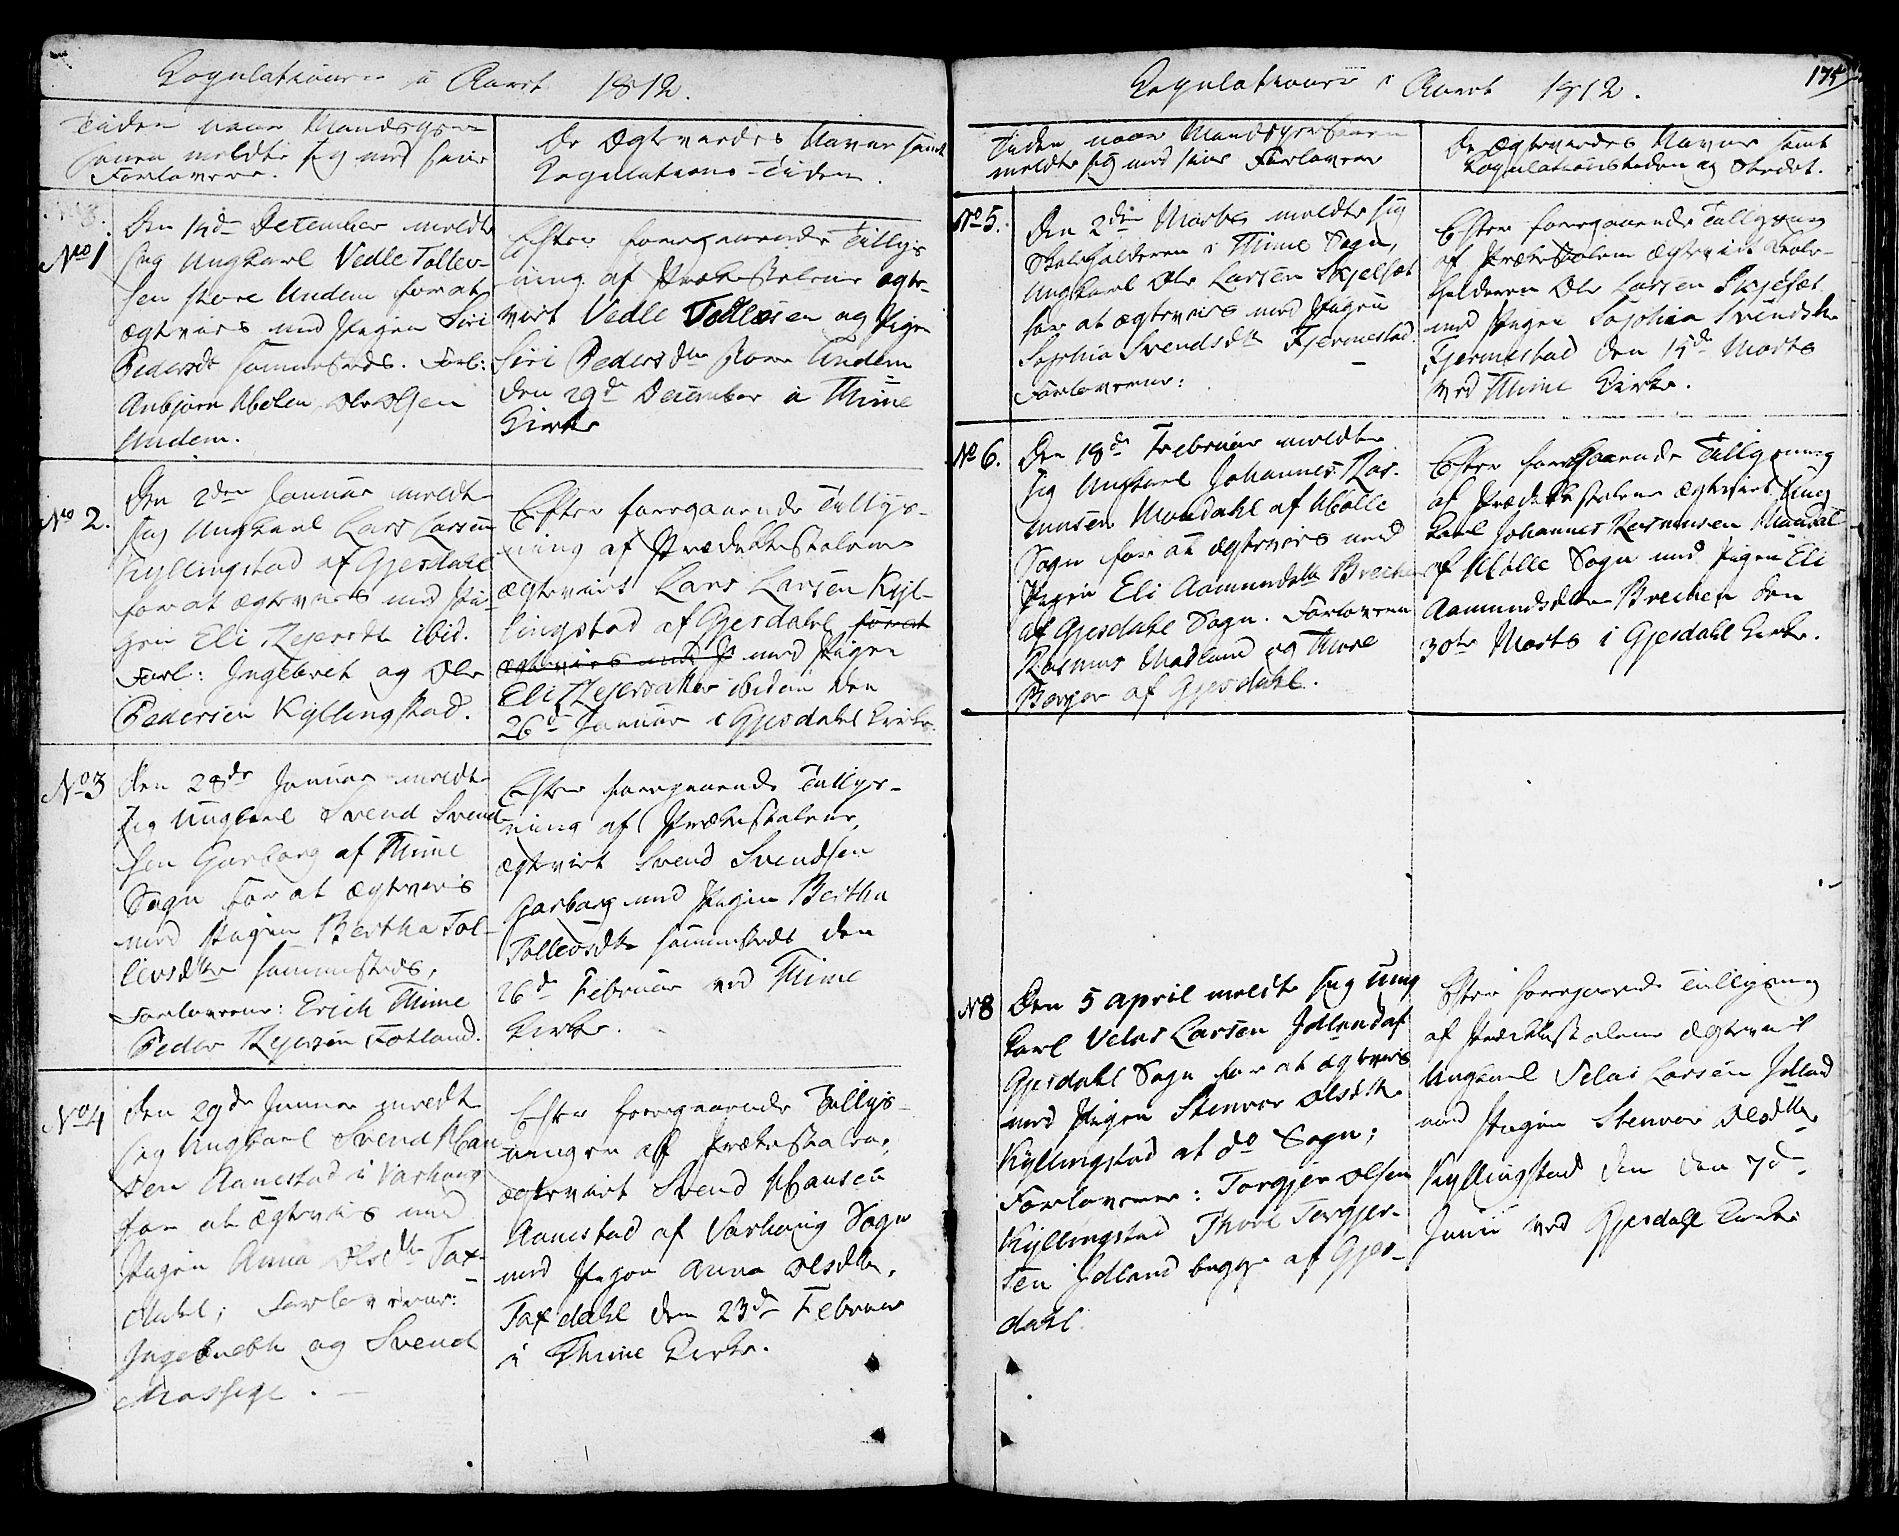 Copulationer i Aaret 1812.
Tiden naar Mandsper-
sonen meldte sig med sine
Forlovere.
De Ægteviedes Navne samt
Copulations-Tiden.
No 1
Den 14de December meldte
sig Ungkarl Vedle Tollev-
sen store Undem for at
ægtevies med Pigen Siri
Pedersdtr sammesteds. Forl:
Anbjørn Ole Olsen
Undem.
Efter foregaaende Tillys-
ning af Prækestolene ægte-
viet Vedle Tollevsen og Pigen
Siri Pedersdtr store Undem
den 29de December i Thime
Kirke
No 2.
Den 2den Januar meldte
sig Ungkarl Lars Larsen
Kyllingstad af Gjesdahl
for at ægtevies med Pi-
gen Eli Rejersdtr ibid.
Forl: Ingebret og Ole
Pedersen Kyllingstad.
Efter foregaaende Tillys-
ning af Prædikestolene
ægteviet Lars Larsen Kyl-
lingstad af Gjesdahl for at
ægtevies med P med Pigen
Eli Rejersdatter ibidem den
26de Januar i Gjesdahl Kirke.
No 3
Den 28de Januar meldte
sig Ungkarl Svend Svend-
sen Garborg af Thime
Sogn for at ægtevies
med Pigen Bertha Tol-
levsdtr sammesteds,
Forloverne: Erich Thime
Peder Rejersen Fotland.
Efter foregaaende Tillys-
ning af Prækestolene,
ægteviet Svend Svendsen
Garborg med Pigen Bertha
Tollevsdtr sammesteds den
26de Februar ved Thime
Kirke.
No 4
Den 29de Januar meldte
sig Ungkarl Svend Han-
sen Aanestad i Varhoug
for at ægtevies med
Pigen Anna Olsdtr Tax-
dahl; Forloverne:
Ingebreth og Svend
Mossige.
Efter foregaaende Tillys-
ningen af Prækestolene,
ægteviet Svend Hansen
Aanestad af Varhoug Sogn
med Pigen Anna Olsdtr,
Taxdahl den 23de Februar
i Thime Kirke.
Copulationer i Aaret 1812.
175
Tiden naar Mandspersonen
meldte sig med sine Forlovere
De Ægteviedes Navne samt
Copulationstiden og Stedet.
No 5.
Den 2den Marts meldte sig
Skoleholderen i Thime Sogn,
Ungkarl Ole Larsen Skjelset
for at ægtevies med Pigen
Sophia Svendsdtr Fjermestad.
Forloverne:
Efter foregaaende Tillysning
af Prækestolen ægteviet Skole-
holderen Ole Larsen Skjelset
med Pigen Sophia Svendsdtr
Fjermestad den 15de Marts
ved Thime Kirke.
No 6.
Den 18de Februar meldte
sig Ungkarl Johannes Ras-
musen Maudahl af Hølle
Sogn for at ægtevies med
Pigen Eli Aamundsdtr Breiken
af Gjesdahl Sogn. Forloverne
Rasmus Madland og Thore
af Gjesdahl.
Efter foregaaende Tillysning
af Prædikkestolene ægteviet Ung
karl Johannes Rasmusen Maudal
af Hølle Sogn med Pigen Eli
Aamundsdtr Breiken den
30te Marts i Gjesdahl Kirke.
N 8
Den 5 April meldte sig Ung
karl Velas Larsen Idland af
Gjesdahl Sogn for at ægtevies
med Pigen Stenvor Olsdtr
Kyllingstad af do Sogn;
Forloverne: Torgjer Olsen
Kyllingstad Thore Torgjer-
sen Idland begge af Gjes-
dahl.
Efter foregaaende Tillysning
af Prædikestolene ægteviet
Ungkarl Velas Larsen Idland
med Pigen Stenvor Olsdtr
Kyllingstad den den 7de
Junii ved Gjesdahl Kirke